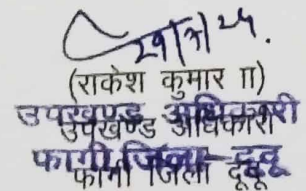 29/7/24.
(राकेश कुमार II)
उपखण्ड अधिकारी
उपखण्ड अधिकारी
फागी जिला-दूदू
फागी जिला दूदू